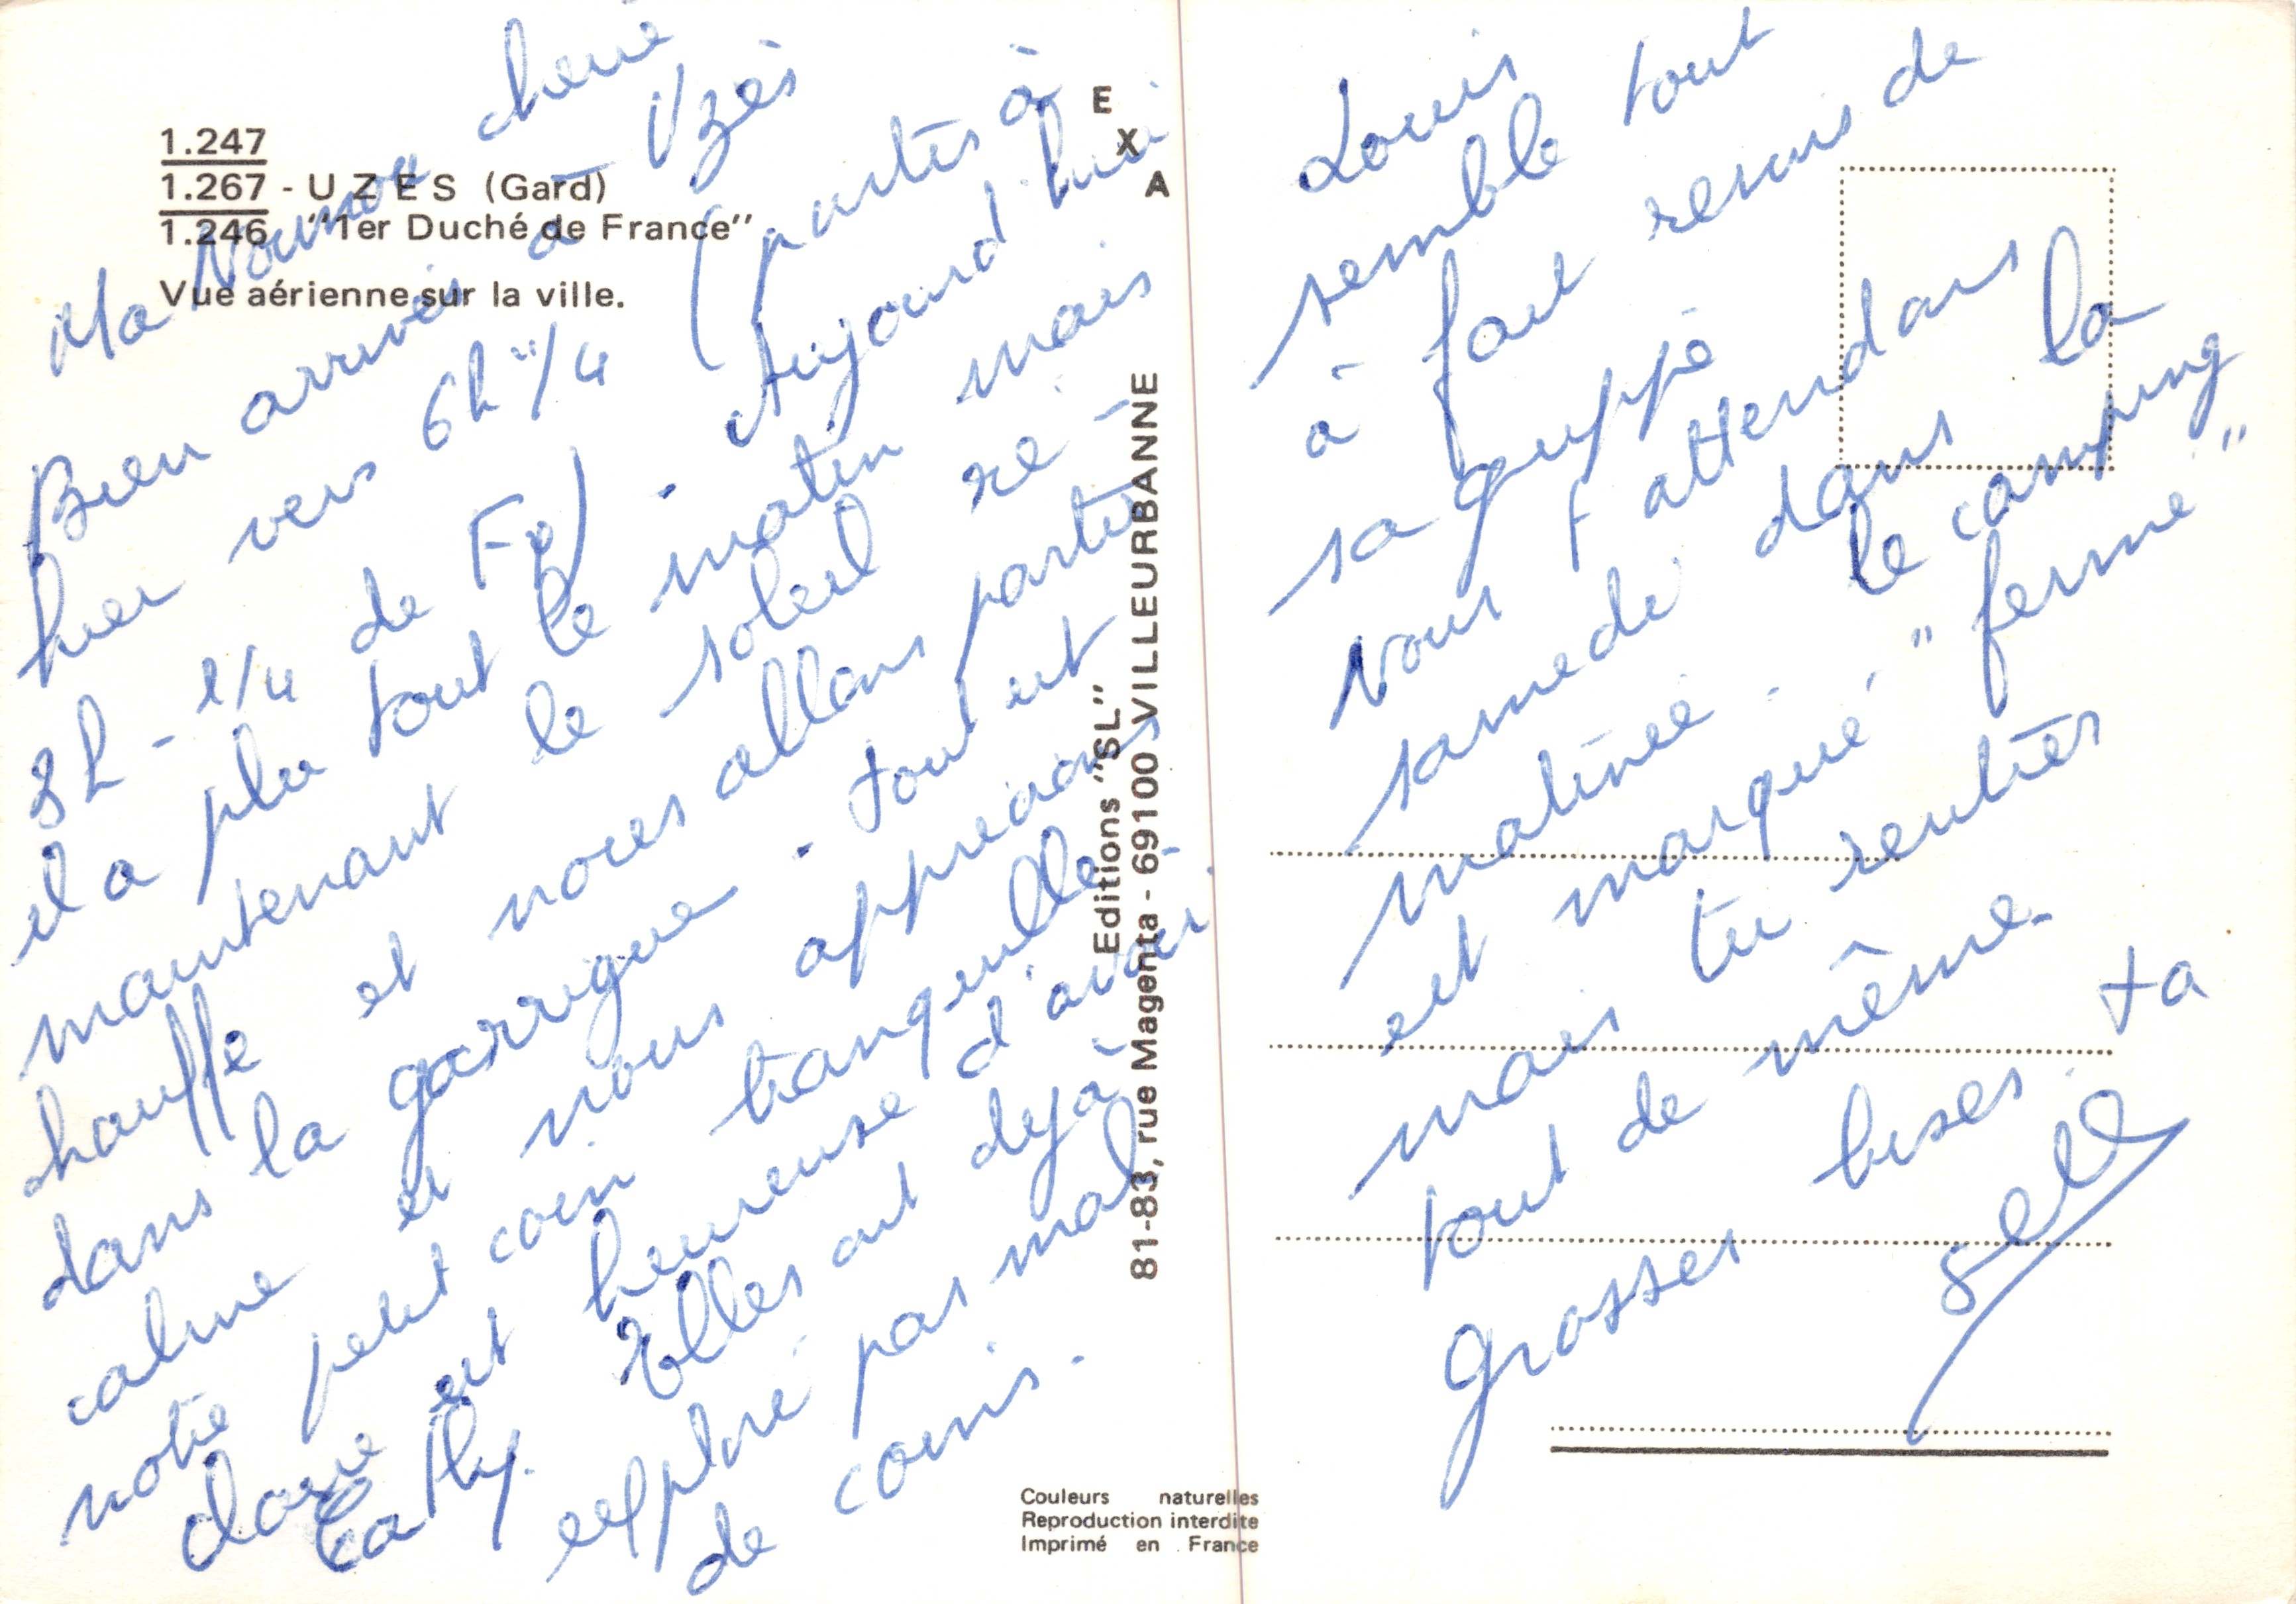 1.247
1.267 - UZES (Gard)
1.246 "1er Duché de France"
Vue aérienne sur la ville.
Ma chérie
Bien arrivés à Uzès
hier vers 6h 1/4 (partis à
3h - 1/4 de ) . Aujourd'hui
il a plu tout le matin mais
maintenant le soleil ré-
chauffe et nous allons partir
dans la garrigue . tout est
calme et nous apprécions
notre petit coin tranquille
est heureuse d'avoir
Cathy. Elles ont déjà
exploré pas mal
de coins.
E
X
A
Editions "SL"
81-83, rue Magenta - 69100 VILLEURBANNE
Couleurs naturelles
Reproduction interdite
Imprimé en France
Louis
semble tout
à fait remis de
sa guppe
Nous t'attendons
samedi dans la
matinée . le camping
est marqué "ferme"
mais tu rentres
tout de même
grosses bises. ta